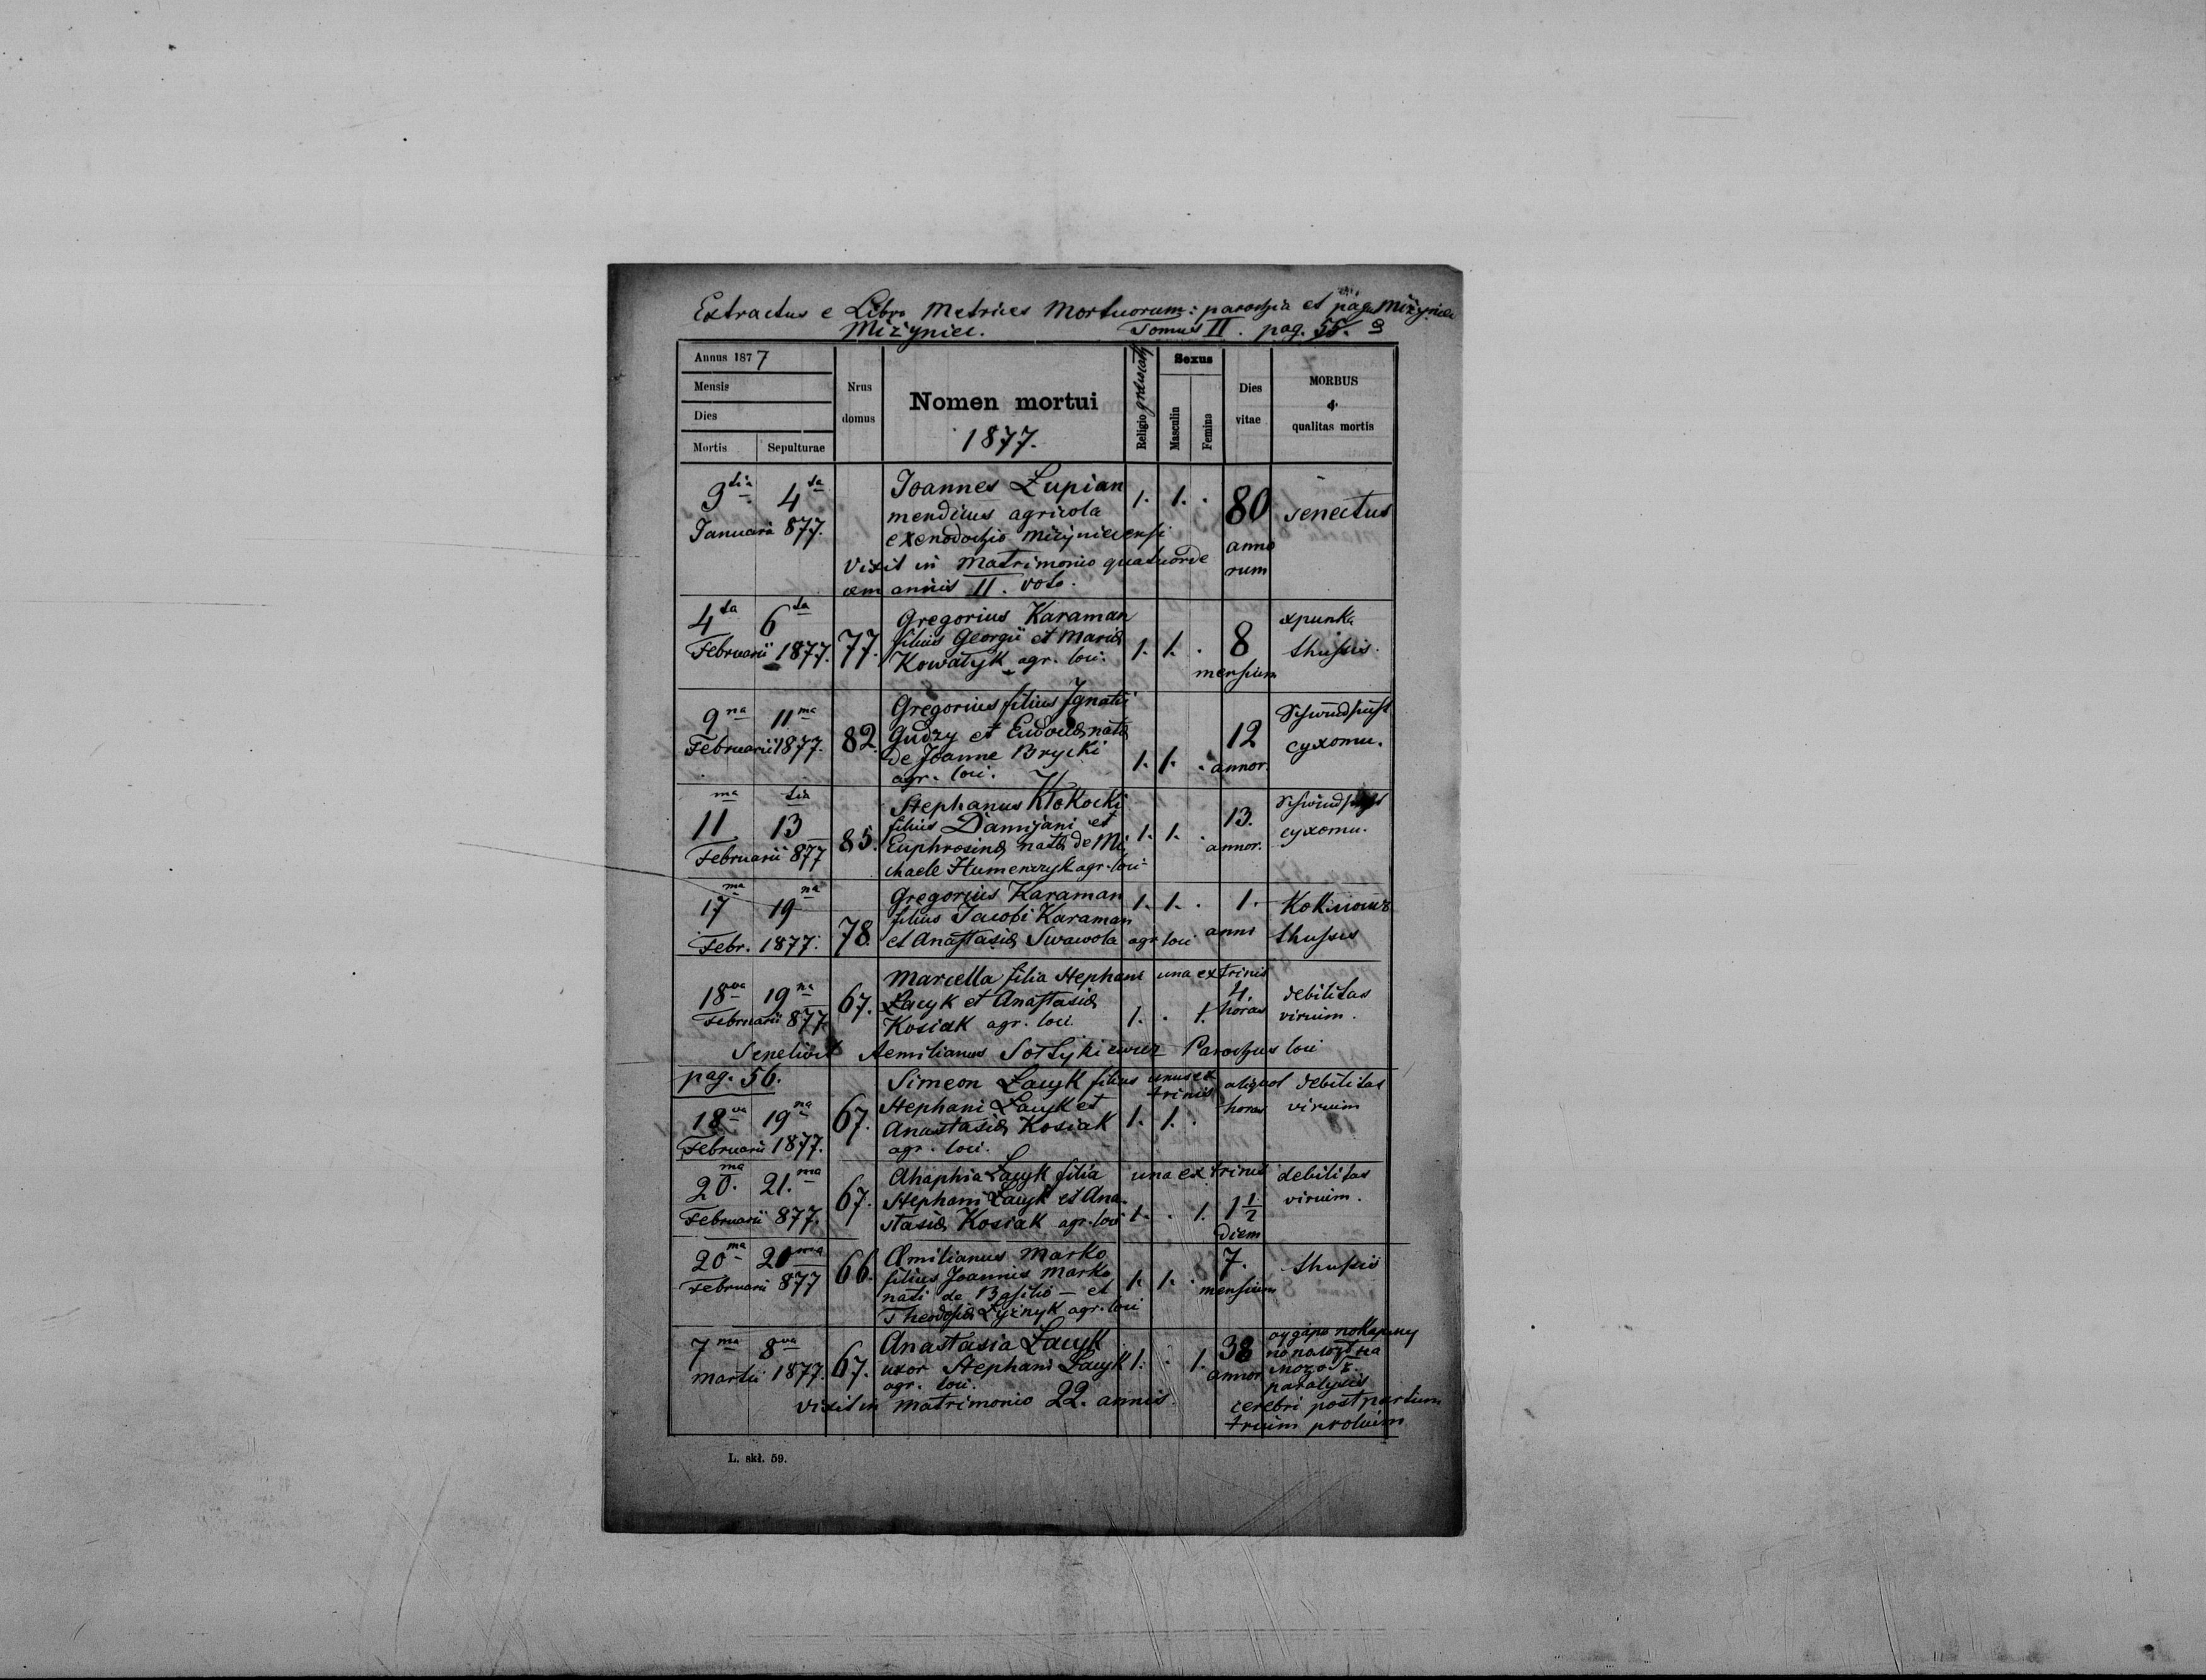 Extractus e Libro Metrices Mortuorum: parochia et pagi Miżyniec
Miżyniec. Tomus II. pag. 55.
Annus 1877
Mensis
Dies
Mortis Sepulturae
Nrus domus
Nomen mortui
1877.
Religio
Sexus
Masculin
Femina
Dies vitae
MORBUS
&
qualitas mortis
3tia 4ta Joannes Łupian 1. 1. . 80 senectus
Januarii 877. mendicus agricola
exenodochio miżyniecensi anno
vixit in matrimonio quatuorde rum
cem annis II. voto.
4ta 6ta Gregorius Karaman
Februarii 1877. 77. filius Georgii et Mariæ 1. 1. . 8 thussis.
Kowalyk agr. loci. mensium
9na 11ma Gregorius filius Ignatii Schwindsucht
Februarii 1877. 82. Gudzy et Eudociæ natæ 12 сухоты.
de Joanne Brycki 1. 1. . annor.
agr. loci.
11ma 13tia Stephanus Kłokocki 13. Schwindsucht
filius Damijani et сухоты.
Februarii 877 85. Euphrosinæ natæ de Mi 1. 1. . annor.
chaele Humenczyk agr. loci
17ma 19na Gregorius Karaman 1. 1. . 1.
Febr. 1877. 78. filius Jacobi Karaman anni
et Anastasiæ Swawola agr loci thussis
18va 19na Marcella filia Stephani una ex trinis
67. Łacyk et Anastasiæ 4. debilitas
Februarii 877. Kosiak agr. loci. 1. . 1. horas virium.
Aemilianus Sołtykiewicz Parochus loci
pag. 56. Simeon Łacyk filius unus ex trinis aliquot debilitas
18va 19na 67. Stephani Łacyk et horas virium
Februarii 1877. Anastasiæ Kosiak 1. 1. .
agr. loci.
20.ma 21.ma Ahaphia Łacyk filia una ex trinis debilitas
67. Stephani Łacyk et Ana- virium.
Februarii 877. stasiæ Kosiak agr. loci 1. . 1. 1 1/2
diem
20ma 20ma Æmilianus Marko 7. thussis
Februarii 877 66. filius Joannis Marko 1. 1. . mensium
nati de Basilio — et
Theodosiæ Łyżnyk agr. loci
7ma 8va Anastasia Łacyk 38
Martii 1877. 67. uxor Stephani Łacyk 1. . 1. annor
agr. loci. paralysis
vixit in matrimonio 22. annis. cerebri post partum
trium prolium
L. skł. 59.